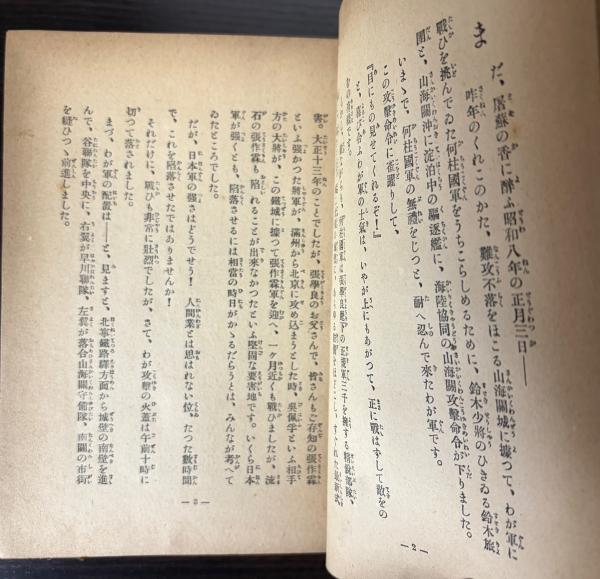 まだ、屠蘇の香に醉ふ昭和八年の正月三日――
昨年のくれこのかた、難攻不落をほこる山海關城に據つて、わが軍に
戰ひを挑んでゐた何柱國軍をうちこらしめるために、鈴木少將のひきゐる鈴木旅
團と、山海關沖に淀泊中の驅逐艦に、海陸協同の山海關攻擊命令が下りました。
いまゝで、何柱國軍の無禮をじつと、耐へ忍んで來たわが軍です。
この攻擊命令に雀躍りして、
『目にもの見せてくれるぞ！』
と、わが軍の士氣は、いやが上にもあがつて、正に戰はずして敵をの
―2―
害。大正十三年のことでしたが、張學良のお父さんで、皆さんもご存知の張作霖
といふ張かつた將軍が、滿州から北京に攻め込まうとした時、吳佩孚といふ相手
方の大將が、この鐵城に據つて張作霖軍を迎へ、一ケ月近くも戰ひましたが、流
石の張作霖も、陷れることが出來なかつたといふ堅固な要害地です。いくら日本
軍が强くとも、陷落させるには相當の時日がかゝるだらうとは、みんなが考へて
ゐたところでした。
だが、日本軍の强さはどうでせう！　人間業とは思はれない位、たつた數時間
で、これを陷落させたではありませんか！
それだけに、戰ひも非常に壯烈でしたが、さて、わが攻擊の火蓋は午前十時に
切つて落されました。
まづ、わが軍の配置は――と、見ますと、北寧鐵路驛方面から城壁の南壁を進
んで、谷聯隊を中央に、右翼が早川聯隊、左翼が落合山海關守備隊、南關の市街
を縫ひつゝ前進しました。
―3―